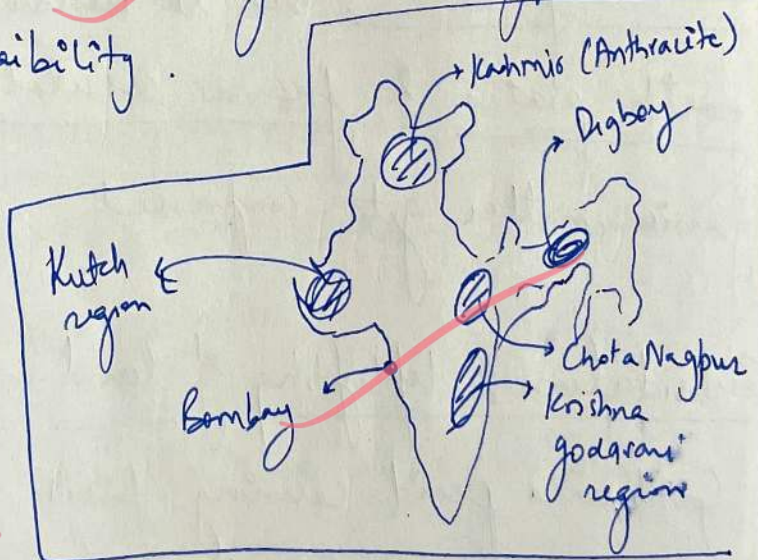 ibility.
Kashmir (Anthracite)
Digboy
Kutch
region
Chota Nagpur
Bombay
Krishna
godavari
region